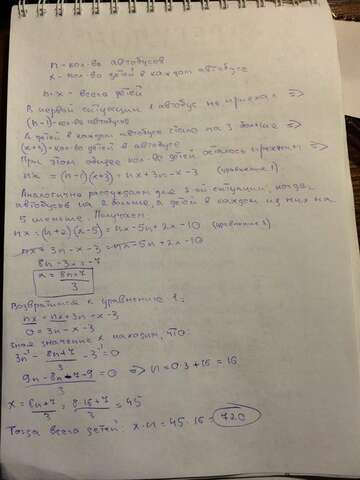 n - кол-во автобусов
x - кол-во детей в каждом автобусе
n·x - всего детей
В первой ситуации 1 автобус не приехал ⇒
(n-1) - кол-во автобусов
А детей в каждом автобусе стало на 3 больше ⇒
(x+3) - кол-во детей в автобусе
При этом общее кол-во детей осталось прежним ⇒
nx = (n-1)(x+3) = nx+3n-x-3 (уравнение 1)
Аналогично рассуждаем для 2-ой ситуации, когда
автобусов на 2 больше, а детей в каждом из них на
5 меньше. Получаем:
nx = (n+2)(x-5) = nx-5n+2x-10 (уравнение 2)
nx+3n-x-3 = nx-5n+2x-10
8n-3x=-7
x = (8n+7)/3
Возвратимся к уравнению 1:
nx = nx+3n-x-3
0 = 3n-x-3
Зная значение x находим, что:
3n - (8n+7)/3 - 3 = 0
(9n-8n-7-9)/3 = 0 ⇒ n = 0·3+16 = 16
x = (8n+7)/3 = (8·16+7)/3 = 45
Тогда всего детей: x·n = 45·16 = 720